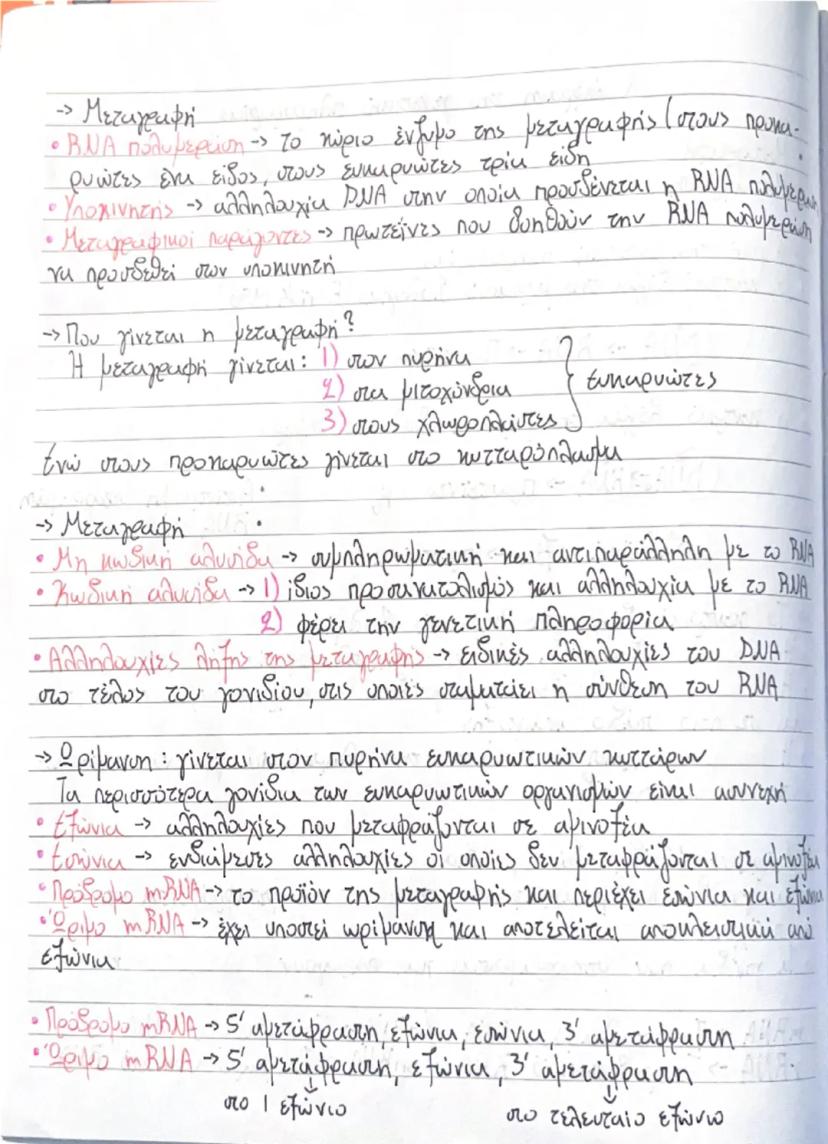 → Μεταγραφή
• RNA πολυμεράση → το κύριο ένζυμο της μεταγραφής (στους προκα-
ρυώτες ένα είδος, στους ευκαρυώτες τρία είδη
• Υποκινητής → αλληλουχία DNA στην οποία προσδένεται η RNA πολυμεράση
• Μεταγραφικοί παράγοντες → πρωτεΐνες που βοηθούν την RNA πολυμεράση
να προσδεθεί στον υποκινητή
→ Που γίνεται η μεταγραφή?
Η μεταγραφή γίνεται: 1) στον πυρήνα
2) στα μιτοχόνδρια } ευκαρυώτες
3) στους χλωροπλάστες
ενώ στους προκαρυώτες γίνεται στο κυτταρόπλασμα
→ Μεταγραφή
• Μη κωδική αλυσίδα → συμπληρωματική και αντιπαράλληλη με το RNA
• Κωδική αλυσίδα → 1) ίδιος προσανατολισμός και αλληλουχία με το RNA
2) φέρει την γενετική πληροφορία
• Αλληλουχίες λήξης της μεταγραφής → ειδικές αλληλουχίες του DNA
στο τέλος του γονιδίου, στις οποίες σταματάει η σύνθεση του RNA
→ Ωρίμανση : γίνεται στον πυρήνα ευκαρυωτικών κυττάρων
Τα περισσότερα γονίδια των ευκαρυωτικών οργανισμών είναι ασυνεχή
• Εξώνια → αλληλουχίες που μεταφράζονται σε αμινοξέα
• Εσώνια → ενδιάμεσες αλληλουχίες οι οποίες δεν μεταφράζονται σε αμινοξέα
• Πρόδρομο mRNA → το προϊόν της μεταγραφής και περιέχει εσώνια και εξώνια
• Ώριμο mRNA → έχει υποστεί ωρίμανση και αποτελείται αποκλειστικά από
εξώνια
• Πρόδρομο mRNA → 5' αμετάφραστη, εξώνια, εσώνια, 3' αμετάφραστη
• Ώριμο mRNA → 5' αμετάφραστη, εξώνια, 3' αμετάφραστη
στο 1 εξώνιο στο τελευταίο εξώνιο